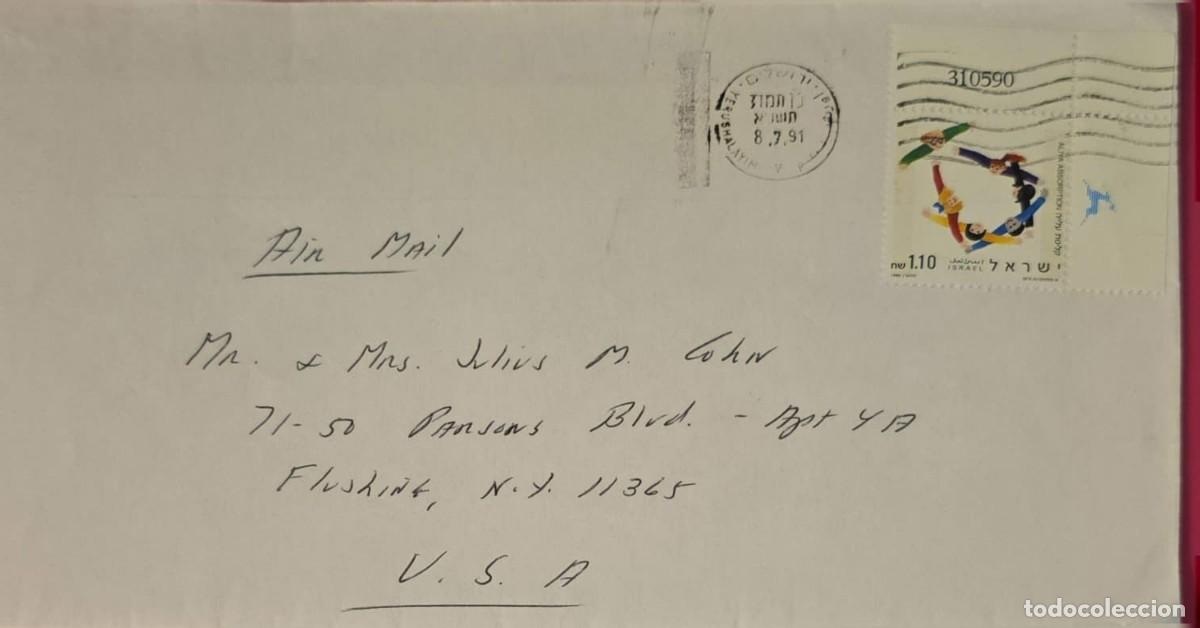 ירושלים
YERUSHALAYIM
כו תמוז
תשנ"א
8.7.91
310590
ALIYA ABSORPTION קליטת עליה
1.10 שח
ISRAEL
ישראל
Air Mail
Mr. & Mrs. Julius M. Cohn
71-50 Parsons Blvd. - Apt 4A
Flushing, N.Y. 11365
U.S.A
todocoleccion